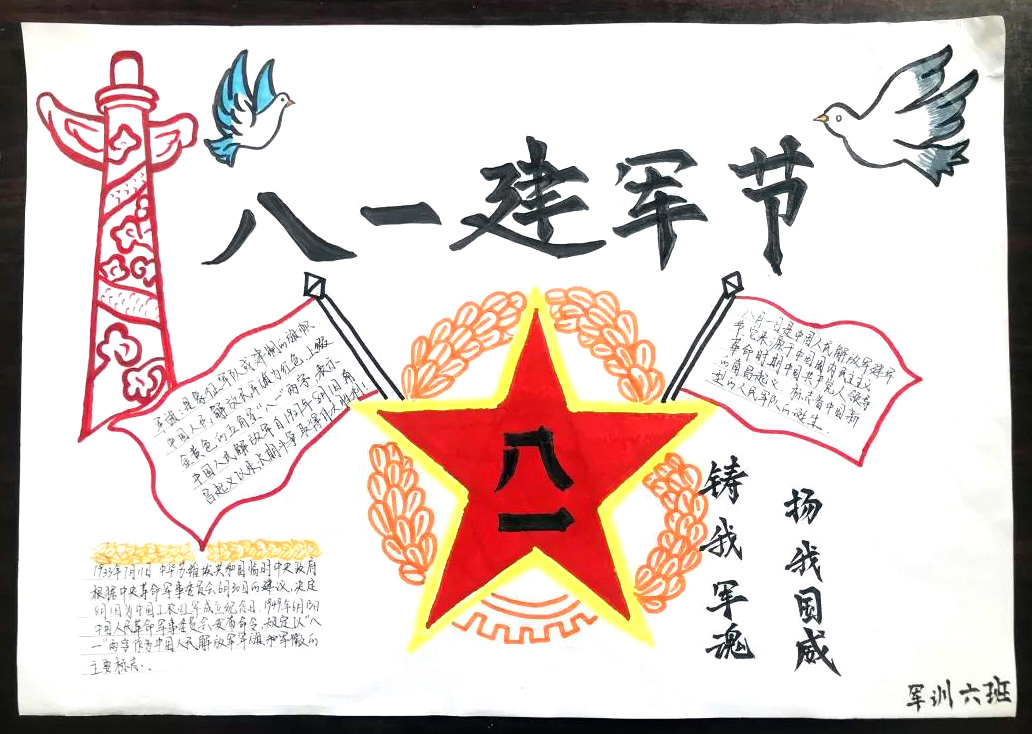 八一建军节
军旗：是象征军队或建制的旗帜，
中国人民解放军军旗为红色，上缀
金黄色的五角星“八一”两字，表示
中国人民解放军自1927年8月1日南
昌起义以来，长期斗争取得伟大胜利！
八月一日是中国人民解放军建军
节，它来源于中国国内民主主义
革命时期，中国共产党人领导
的南昌起义，标志着中国新
型的人民军队的诞生。
八一
铸我军魂
扬我国威
1933年7月11日中华苏维埃共和国临时中央政府
根据中央革命军事委员会6月30日的建议，决定
8月1日为中国工农红军成立纪念日，1949年6月15日
中国人民革命军事委员会发布命令，规定以“八
一”两字作为中国人民解放军军旗和军徽的
主要标志。
军训六班